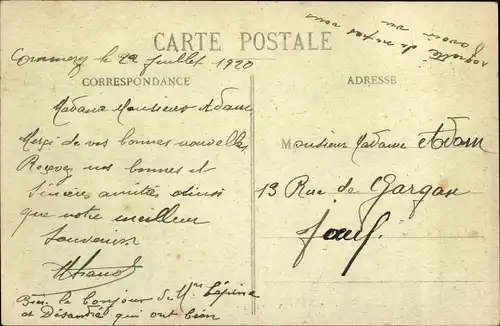 CARTE POSTALE
regretté de ne pas
avoir vu vous
Commercy le 22 Juillet 1920
CORRESPONDANCE
ADRESSE
Madame Monsieur Adam
Merçi de vos bonnes nouvelles
Recevez nos bonnes et
Sincères amitiés ainsi
que notre meilleur
Souvenir
Bien le bonjour de Mme Lépine
et Désandré qui ont bien
Monsieur Madame Adam
13 Rue de Gargan
Jœuf.